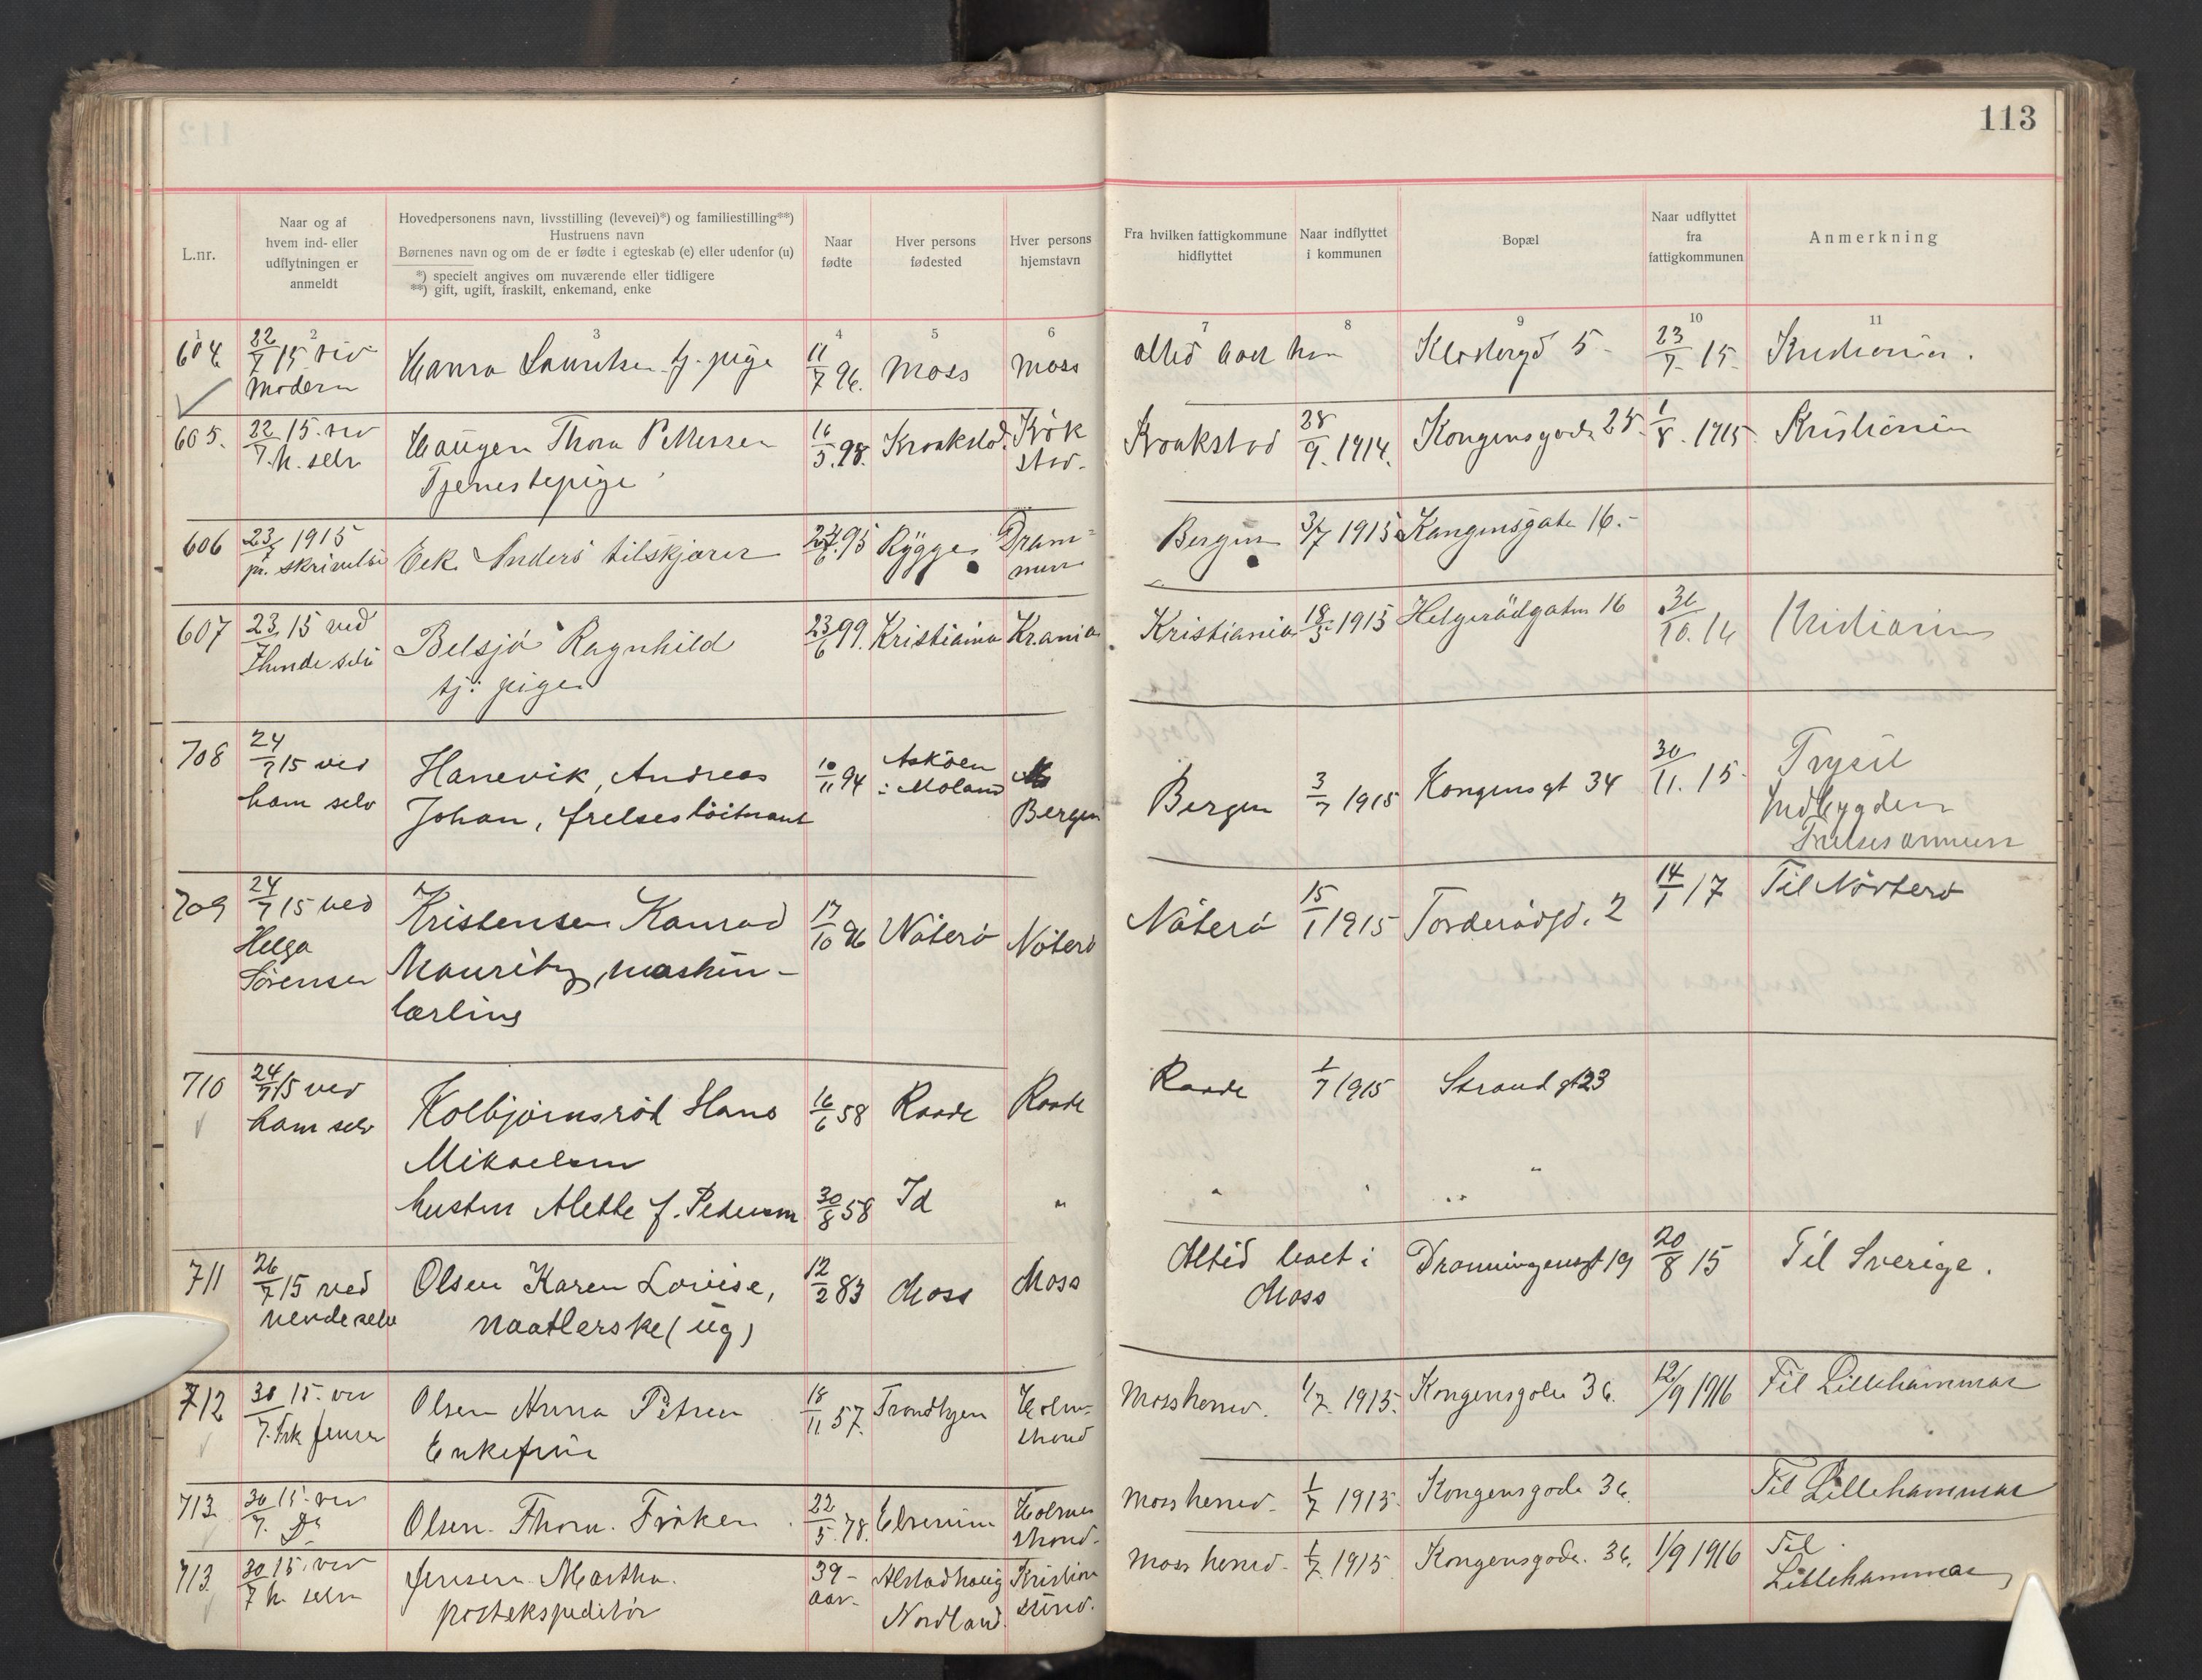 113
L.nr.
Naar og af
hvem ind- eller
udflytningen er
anmeldt
Hovedpersonens navn, livsstilling (levevei)*) og familiestilling**)
Hustruens navn
Børnenes navn og om de er fødte i egteskab (e) eller udenfor (u)
*) specielt angives om nuværende eller tidligere
**) gift, ugift, fraskilt, enkemand, enke
Naar
fødte
Hver persons
fødested
Hver persons
hjemstavn
Fra hvilken fattigkommune
hidflyttet
Naar indflyttet
i kommunen
Bopæl
Naar udflyttet
fra
fattigkommunen
Anmerkning
1 2 3 4 5 6 7 8 9 10 11
604 22/7 15 ved Hanna Lauritsen tj. pige 11/7 96. Moss Moss altid boet her 5 23/7 15. Kristiania.
Modern
605. 22/7 15. ved Haugen Thora Pettersen 16/5. 98. Kraakstad. Krök Kraakstad 28/9. 1914. Kongensgade 25. 1/8. 1915. Kristiania
h. selv Tjenestepige stad.
606 23/7 1915 Eek Anders tilskjærer 95 Rygge Dram-
pr. skrivelse men Bergen 3/7 1915 Kongensgate 16.-
607 23/7 15 ved Belsjö Ragnhild 23/6 99. Kristiania Kr.ania Kristiania 18/5 1915 Helgerödgaten 16 31/10. 16 Kristiania
hende selv tj: pige
708 24/7 15 ved Hanevik, Andreas 10/11 94 Asköen Bergen 3/7 1915 Kongensgt 34 30/11. 15. Trysil
ham selv Johan, frelseslöitnant i Moland Bergen Indbygden
Frelsesarmeen
709 24/7 15 ved Kristensen Konrad 17/10 96 Nöterö Nöterö Nöterö 15/1 1915 Torderödgd. 2 14/1 17 Til Nötterö
Helga Mauritz, maskin-
Sörensen lærling
710 24/7 15 ved Kolbjörnsröd Hans 16/6 58 Raade Raade Raade 1/7 1915 Strandgt 23
ham selv Mikaelsen
hustru Alette f. Pedersen 30/8 58 Id " " " " "
711 26/7 15 ved Olsen Karen Lovise, 12/2 83 Moss Moss Altid boet i Dronningensgt 19 20/8 15 Til Sverige.
hende selv naatlerske (ug) Moss
712 30/7 15. ved Olsen Anna Petrea 18/11 57. Trondhjem Holme- Moss herred. 1/7. 1915. Kongensgade 36. 12/9 1916 Til Lillehammer
Frk Jensen Enkefrue strand
713. 30/7. 15. ved Olsen. Thora. Fröken. 22/5. 78. Elverum Holme- Moss herred. 1/7 1915. Kongensgade 36. Til Lillehammer
Do strand.
713. 30/7 15. ved Jensen Martha. 39- Alstadhaug Kristian Moss herred. 1/7. 1915. Kongensgade. 36. 1/9 1916 Til
h. selv postekspeditör aar. Nordland. sund. Lillehammer